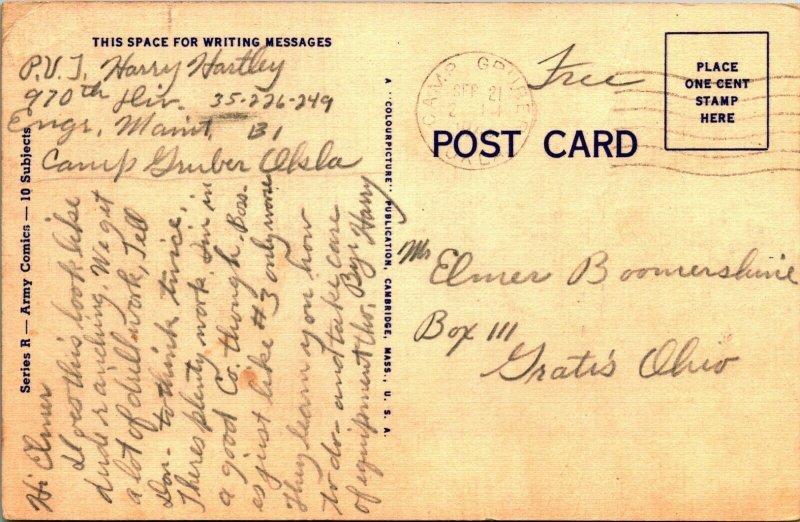 THIS SPACE FOR WRITING MESSAGES
P.V.T. Harry Hartley
970th Div. 35-226-249
Engr. Maint. B1
Camp Gruber Okla
Hi Elmer
Does this look like
dude ranching. We get
a lot of drill work, Tell
Don. to think twice.
Theres plenty work. Im in
a good Co. though. Boss.
is just like #3 only worse
They learn you how
to do- and take care
of equipment tho. Bye Harry
Series R — Army Comics — 10 Subjects
A "COLOURPICTURE" PUBLICATION, CAMBRIDGE, MASS., U. S. A.
CAMP GRUBER
SEP 21
Free
PLACE
ONE CENT
STAMP
HERE
POST CARD
Mr
Elmer Boomershine
Box 111
Gratis Ohio